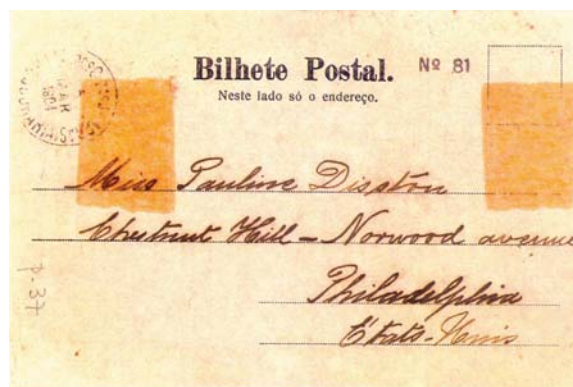 Bilhete Postal.
Nº 81
Neste lado só o endereço.
MAR
1901
Miss Pauline Disston
Chestnut Hill – Norwood avenue
Philadelphia
États-Unis
p. 37